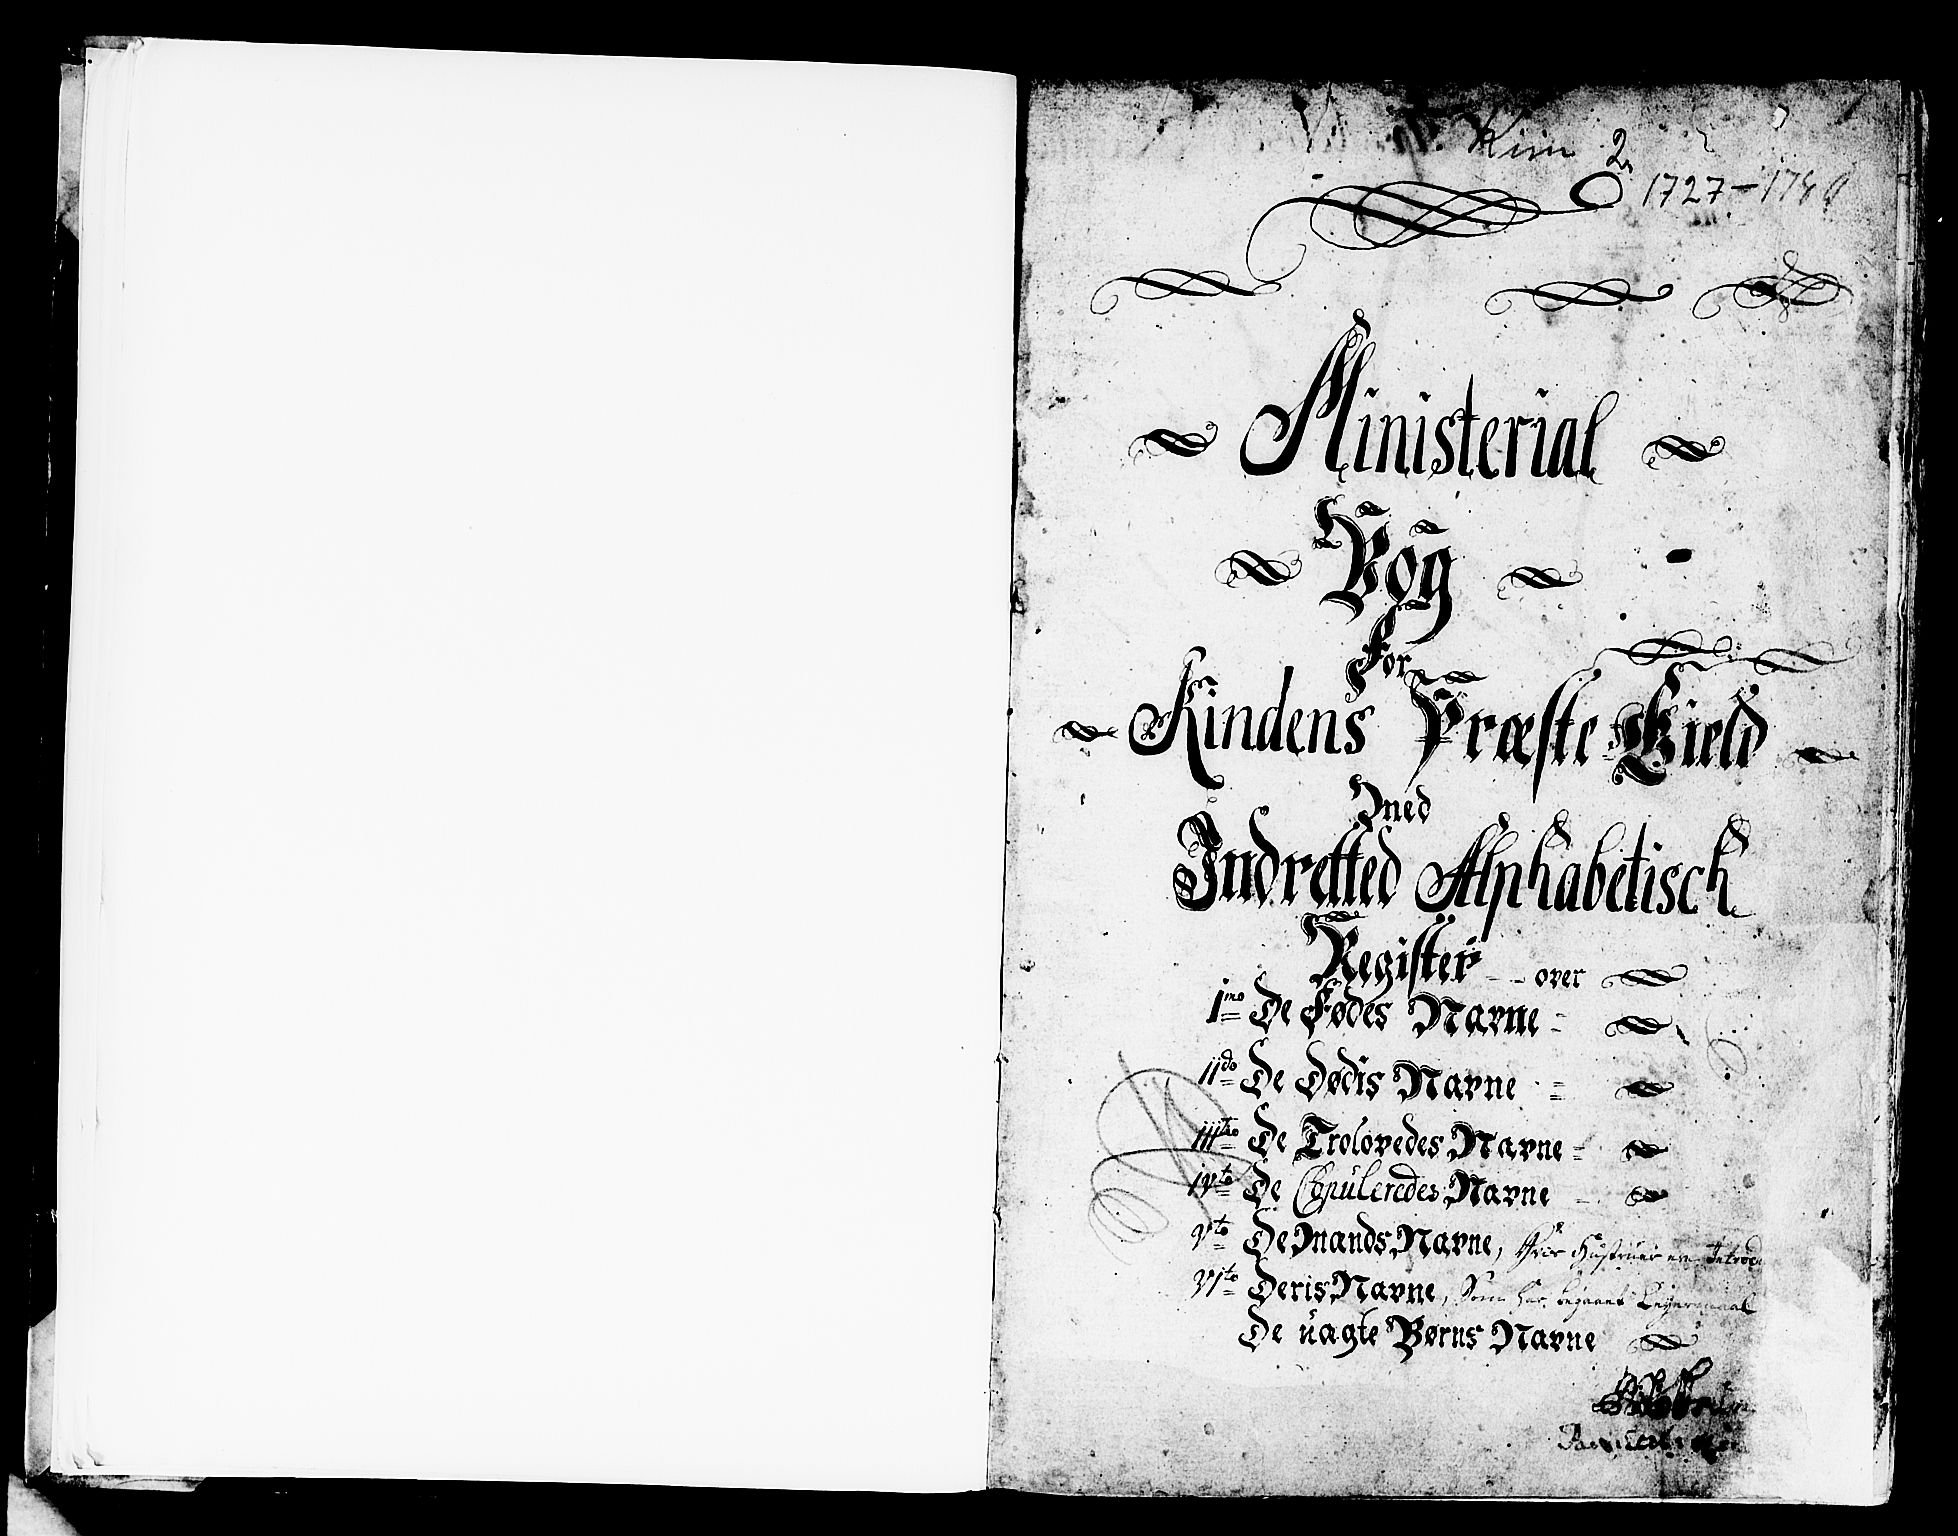 Kinn 2
1727-17
Ministerial
Bog
For
Kindens Præste-Gield
Med
Indretted Alphabetisch
Register - - over
1mo De Fødes Navne
IIdo De Dødis Navne
IIItio De Trolovedes Navne
IVto De Copuleredes Navne
Vto De Mands Navne, Hvis Hustruer er Introd
VIto Deris Navne, Som har begaaet Leyermaal
De uægte Børns Navne